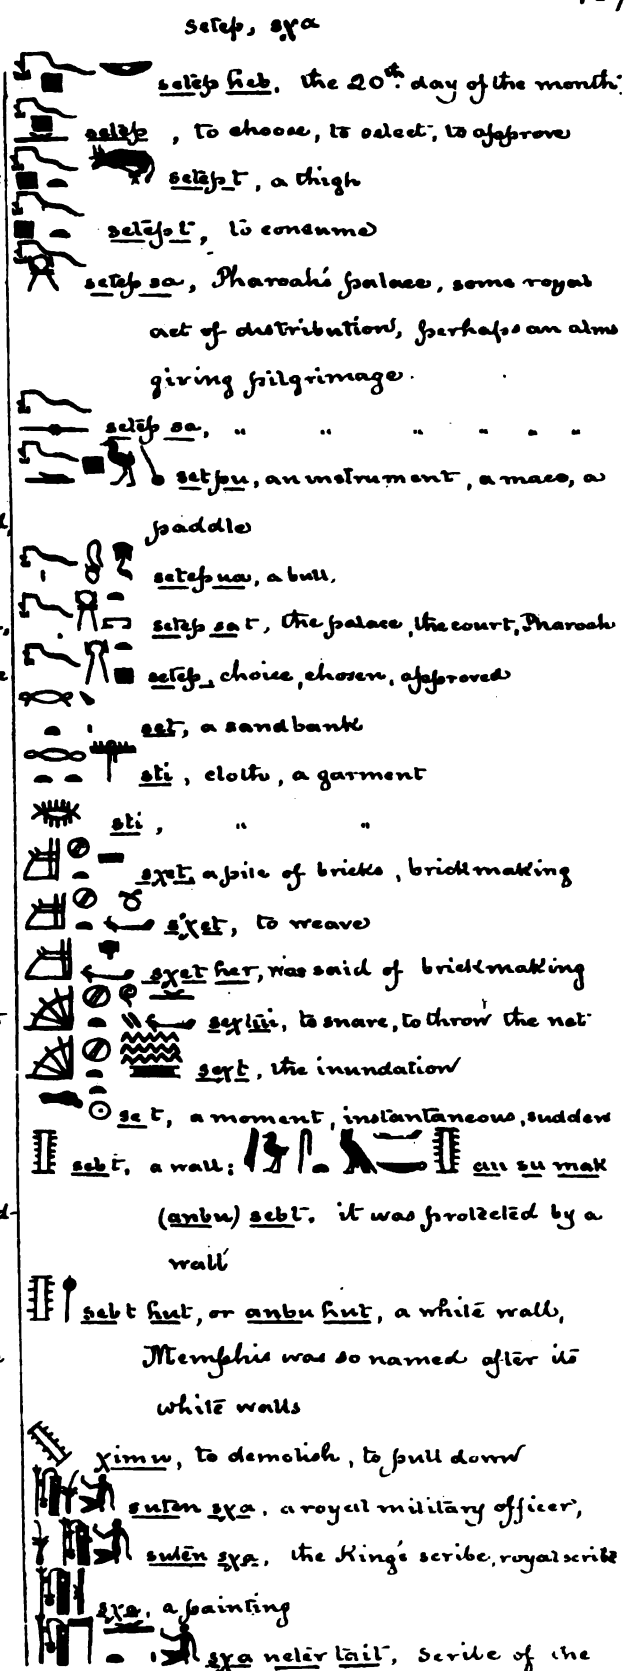 setep, sχa
setep heb, the 20th day of the month
setep, to choose, to select, to approve
setept, a thigh
setept, to consume
setep sa, Pharoah's palace, some royal
act of distribution, perhaps an alms
giving pilgrimage.
setep sa, " " " " " "
setpu, an instrument, a mace, a
paddle
setep ua, a bull.
setep sat, the palace, the court, Pharoah
setep, choice, chosen, approved
set, a sandbank
sti, cloth, a garment
sti, " "
sχet, a pile of bricks, brickmaking
sχet, to weave
sχet her, was said of brickmaking
to snare, to throw the net
seχt, the inundation
set, a moment, instantaneous, sudden
sebt, a wall; au su mak
(anbu) sebt. it was protected by a
wall
sebt hut, or anbu hut, a white wall,
Memphis was so named after its
white walls
χimu, to demolish, to pull down
suten sχa, a royal military officer,
suten sχa, the King's scribe, royal scribe
sχa, a painting
sχa neter tait, scribe of the